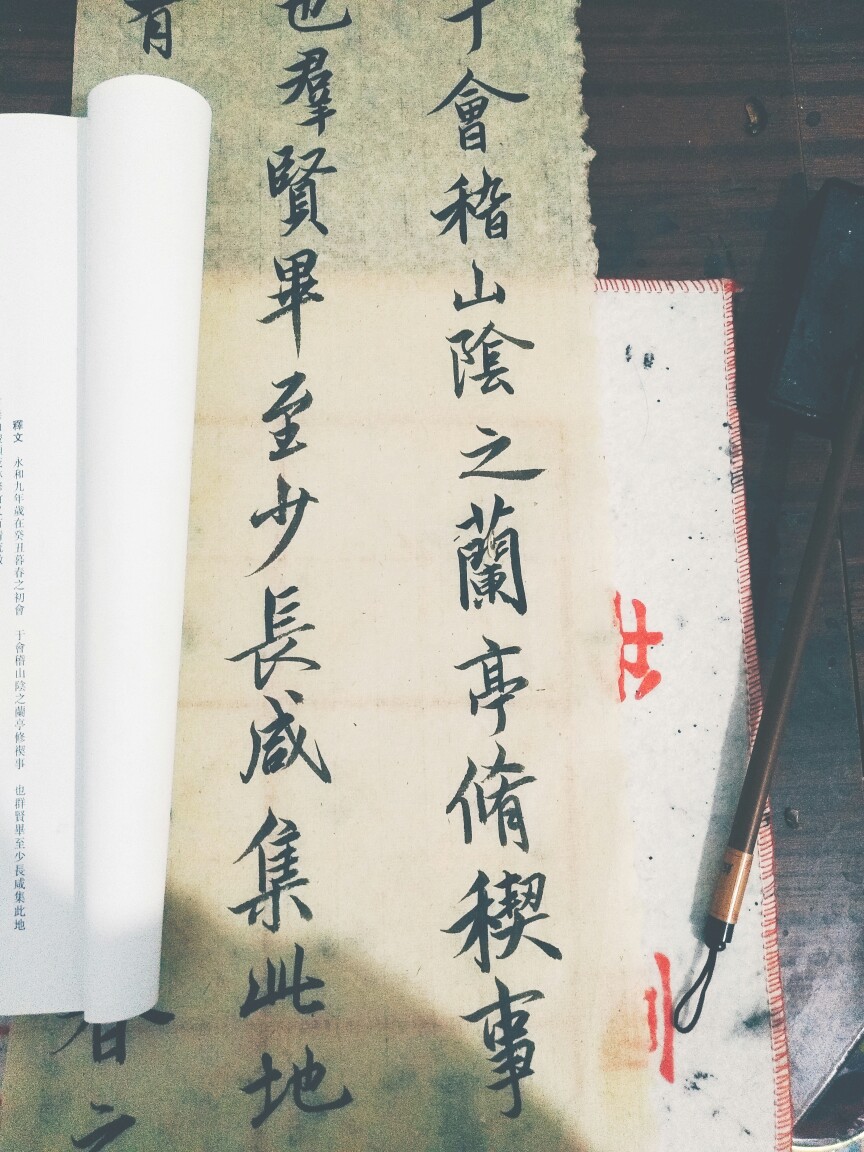 于會稽山陰之蘭亭脩稧事
也羣賢畢至少長咸集此地
有
春之
釋文 永和九年歲在癸丑暮春之初會 于會稽山陰之蘭亭修禊事 也群賢畢至少長咸集此地